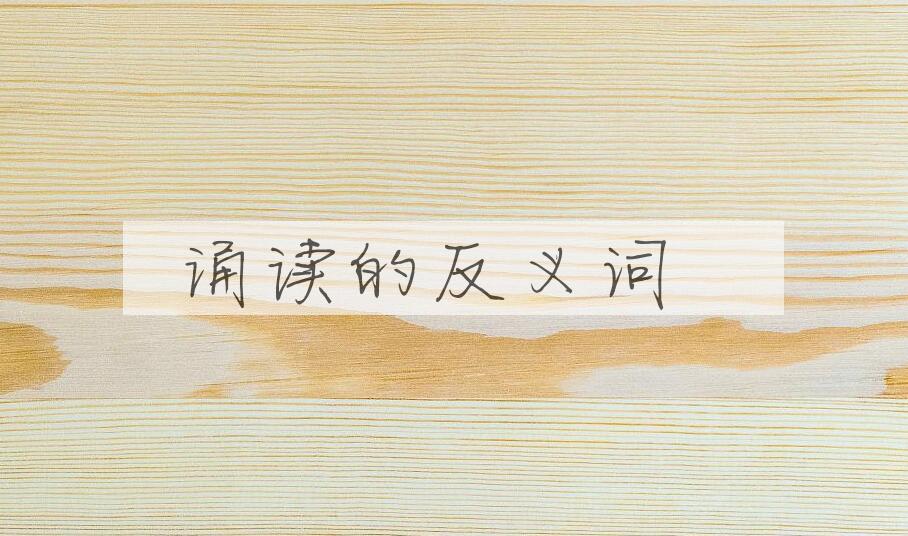 诵读的反义词